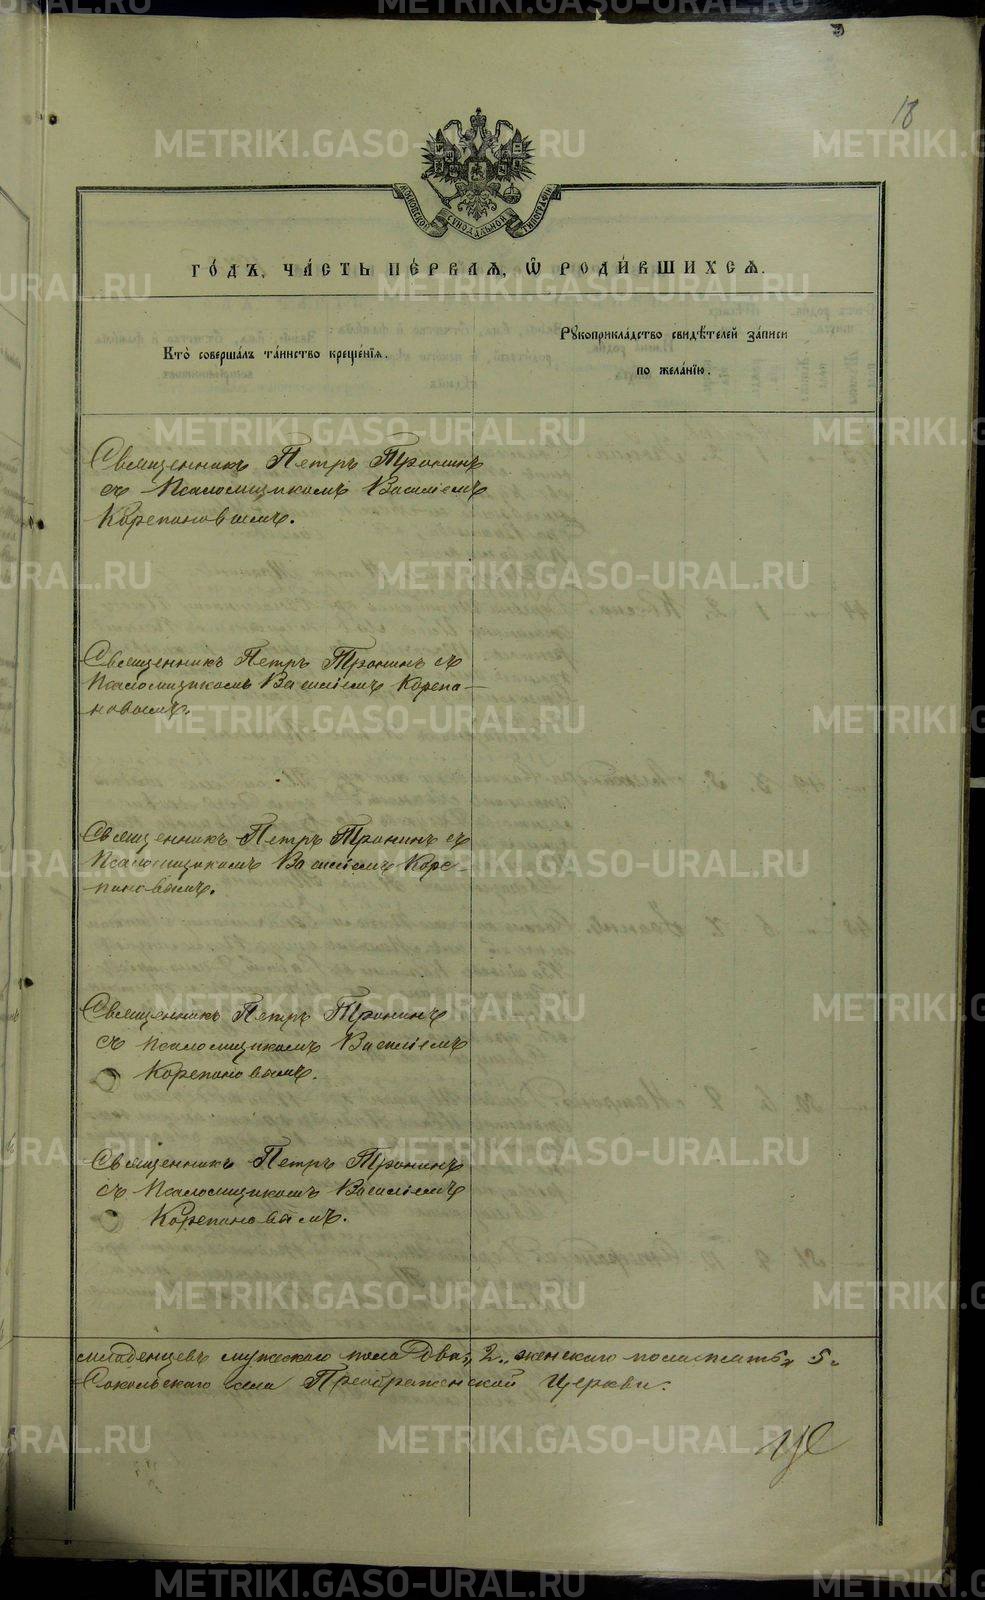 18
МОСКОВСКОЙ СѴНОДАЛЬНОЙ ТИПОГРАФІИ
ГО́ДЪ, ЧА́СТЬ ПЕ́РВАЯ, Ѿ РОДИ́ВШИХСЯ.
Кто̀ соверша́лъ та́инство креще́нїѧ.
Рꙋкоприкла́дство свидѣ́телей за́писи
по жела́нїю.
Священникъ Петръ Тронинъ
съ Псаломщикомъ Василіемъ
Корепановымъ.
Священникъ Петръ Тронинъ съ
Псаломщикомъ Василіемъ Корепа-
новымъ.
Священникъ Петръ Тронинъ съ
Псаломщикомъ Василіемъ Коре-
пановымъ.
Священникъ Петръ Тронинъ
съ Псаломщикомъ Василіемъ
Корепановымъ.
Священникъ Петръ Тронинъ
съ Псаломщикомъ Василіемъ
Корепановымъ.
младенцевъ мужескаго пола Два, 2. женскаго пола пять, 5.
Сокольскаго села Преображенской Церкви.
METRIKI.GASO-URAL.RU